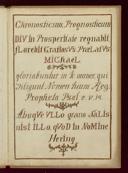 Chronosticum, Prognosticum
DIV In Prosperitate regnabit
fLorebit GratiosVs PraeLatVs
MIChaeL
gloriabuntur in te omnes qui
diligunt Nomen tuum
Propheta Psal. 5. v.
AbsqVe VLLo grano SaLIs
nIsI ILLo qVoD In NoMIne